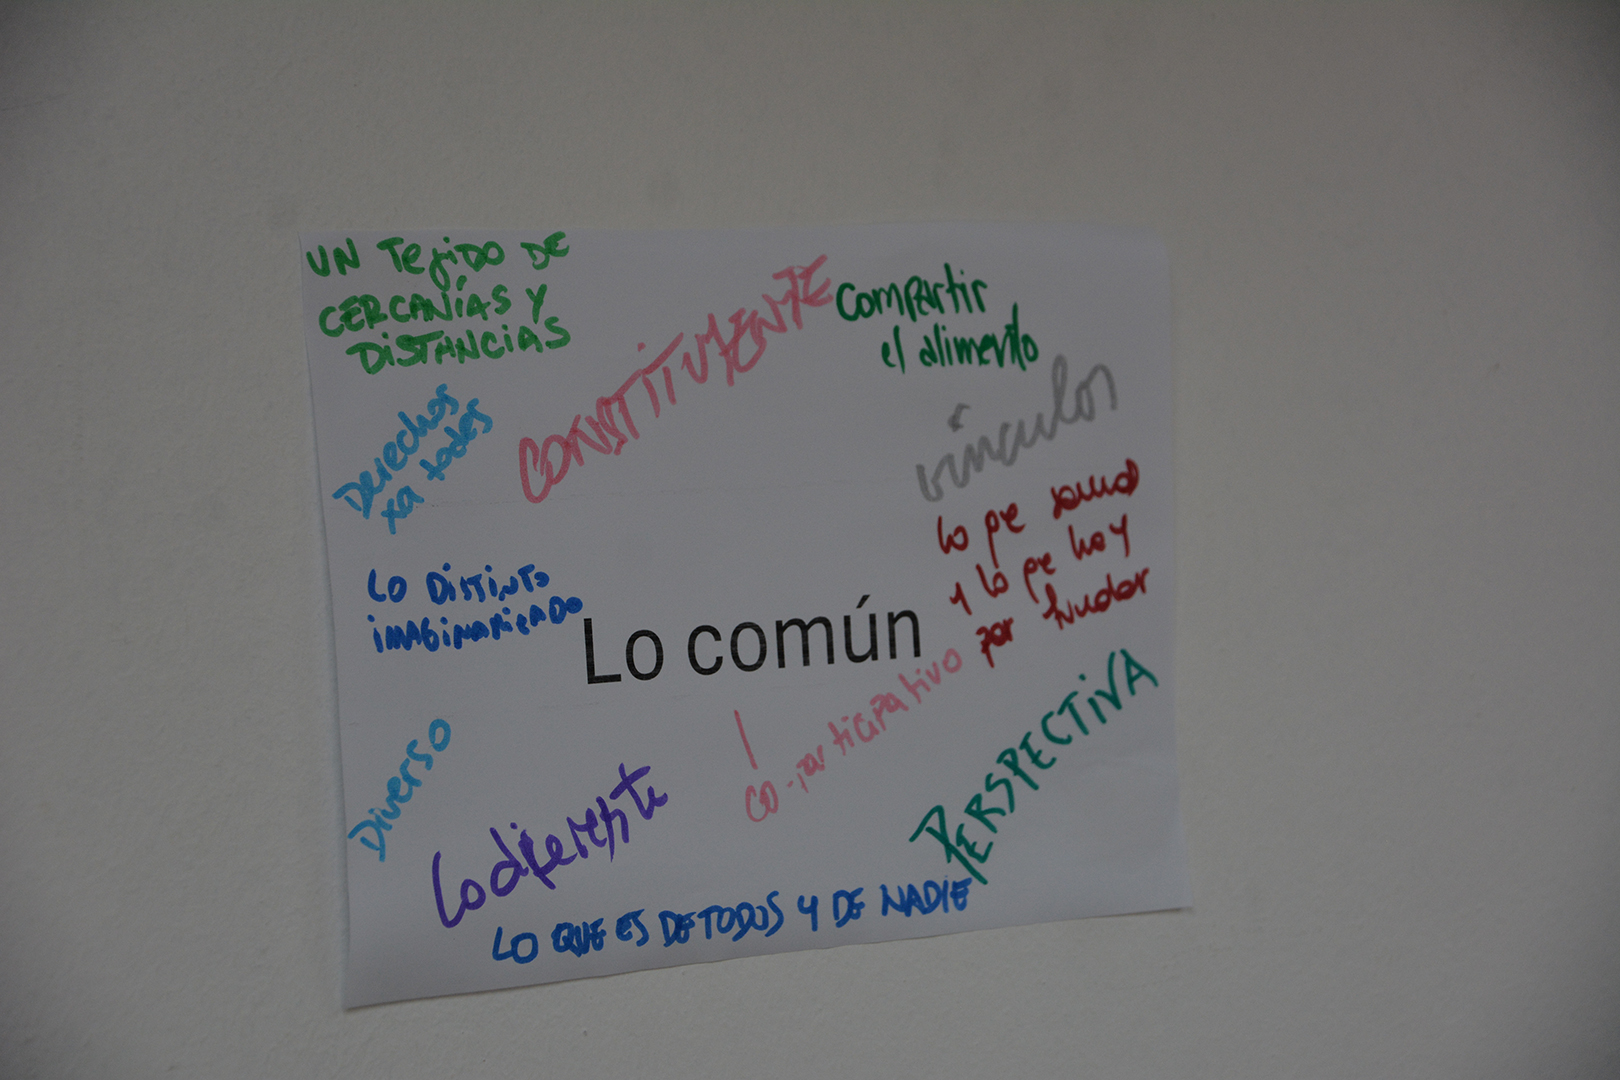 UN TEJIDO DE
CERCANÍAS Y
DISTANCIAS
CONSTITUYENTE
Compartir
el alimento
Derechos
xa todes
vínculos
lo que somos
y lo que hay
por fundar
LO DISTINTO
IMAGINARIEADO
Lo común
Diverso
Lo diferente
co-participativo
PERSPECTIVA
LO QUE ES DE TODOS Y DE NADIE